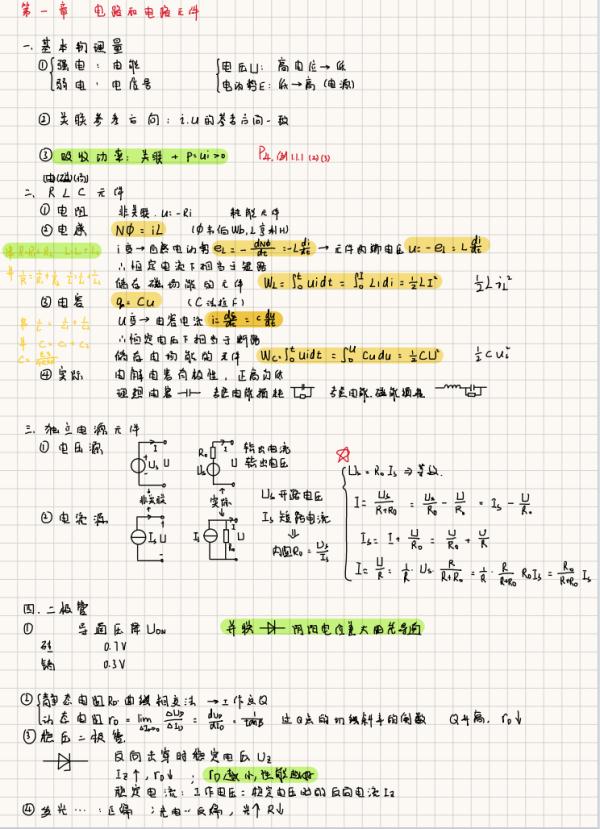 第一章 电路和电路元件
一. 基本物理量
① 强电: 电能 电压U: 高电位→低
弱电: 电信号 电动势E: 低→高(电源)
② 关联参考方向: i.u的参考方向一致
③ 吸收功率: 关联 + P=ui>0 P4.例1.1.1 (2)(3)
二. R L C 元件
① 电阻 非关联. u=-Ri 耗能元件
② 电感 Nφ=iL (φ韦伯Wb, L亨利H)
i变→自感电动势 eL=-dNφ/dt=-L di/dt → 元件两端电压 u=-eL=L di/dt
∴恒定电流下相当于短路
储存磁场能的元件 WL=∫₀ᵗuidt=∫₀ᴵLidi=½LI² ½LiL²
③ 电容 q=Cu (C法拉F)
u变→电容电流 i=dq/dt=c du/dt
∴恒定电压下相当于断路
储存电场能的元件 WC=∫₀ᵗuidt=∫₀ᵁCudu=½CU² ½Cui²
④ 实际 电解电容有极性, 正高负低
理想电容 考虑电能损耗 考虑电能.磁能损耗
三. 独立电源元件
① 电压源 I Us U R0 Us I U 输出电流
输出电压
非关联 实际 Us 开路电压
② 电流源 I Is U I Is R0 U Is 短路电流
⇓
内阻R0=Us/Is
Us=R0Is ⇒ 等效.
I=Us/(R+R0)=Us/R0-U/R0=Is-U/R0
Is=I+U/R0=U/R0+U/R
I=U/R=1/R·Us·R/(R+R0)=1/R·R/(R+R0) R0Is=R0/(R+R0) Is
四. 二极管
① 导通压降UON 并联 阴阳电位差大的先导通
硅 0.7V
锗 0.3V
② 静态电阻R0 曲线相交法 →工作点Q
动态电阻 r0=lim ΔUD/ΔID=dUD/dID=1/tanβ 过Q点的切线斜率的倒数 Q升高, r0↓
③ 稳压二极管
反向击穿时稳定电压UZ
IZ↑, r0↓ ; r0越小,性能越好
稳定电流: 工作电压=稳定电压时的反向电流IZ
④ 发光…: 正偏 ; 光电…反偏, 光↑R↓